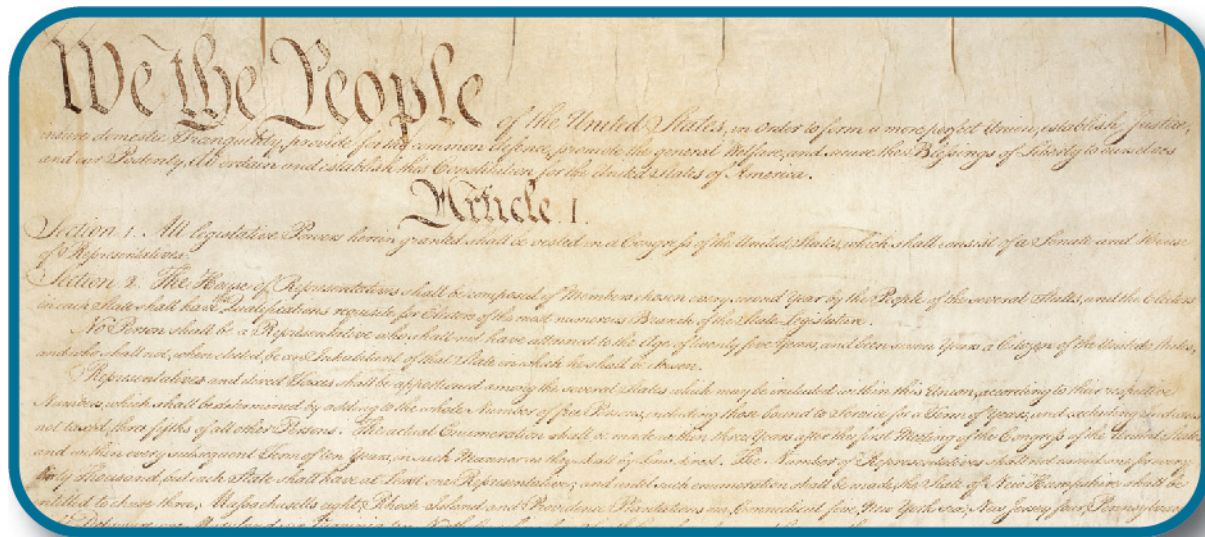 We the People of the United States, in Order to form a more perfect Union, establish Justice,
insure domestic Tranquility, provide for the common defence, promote the general Welfare, and secure the Blessings of Liberty to ourselves
and our Posterity, do ordain and establish this Constitution for the United States of America.
Article. I.
Section. 1. All legislative Powers herein granted shall be vested in a Congress of the United States, which shall consist of a Senate and House
of Representatives.
Section. 2. The House of Representatives shall be composed of Members chosen every second Year by the People of the several States, and the Electors
in each State shall have the Qualifications requisite for Electors of the most numerous Branch of the State Legislature.
No Person shall be a Representative who shall not have attained to the Age of twenty five Years, and been seven Years a Citizen of the United States,
and who shall not, when elected, be an Inhabitant of that State in which he shall be chosen.
Representatives and direct Taxes shall be apportioned among the several States which may be included within this Union, according to their respective
Numbers, which shall be determined by adding to the whole Number of free Persons, including those bound to Service for a Term of Years, and excluding Indians
not taxed, three fifths of all other Persons. The actual Enumeration shall be made within three Years after the first Meeting of the Congress of the United States,
and within every subsequent Term of ten Years, in such Manner as they shall by Law direct. The Number of Representatives shall not exceed one for every
thirty Thousand, but each State shall have at Least one Representative; and until such enumeration shall be made, the State of New Hampshire shall be
entitled to chuse three, Massachusetts eight, Rhode-Island and Providence Plantations one, Connecticut five, New-York six, New Jersey four, Pennsylvania